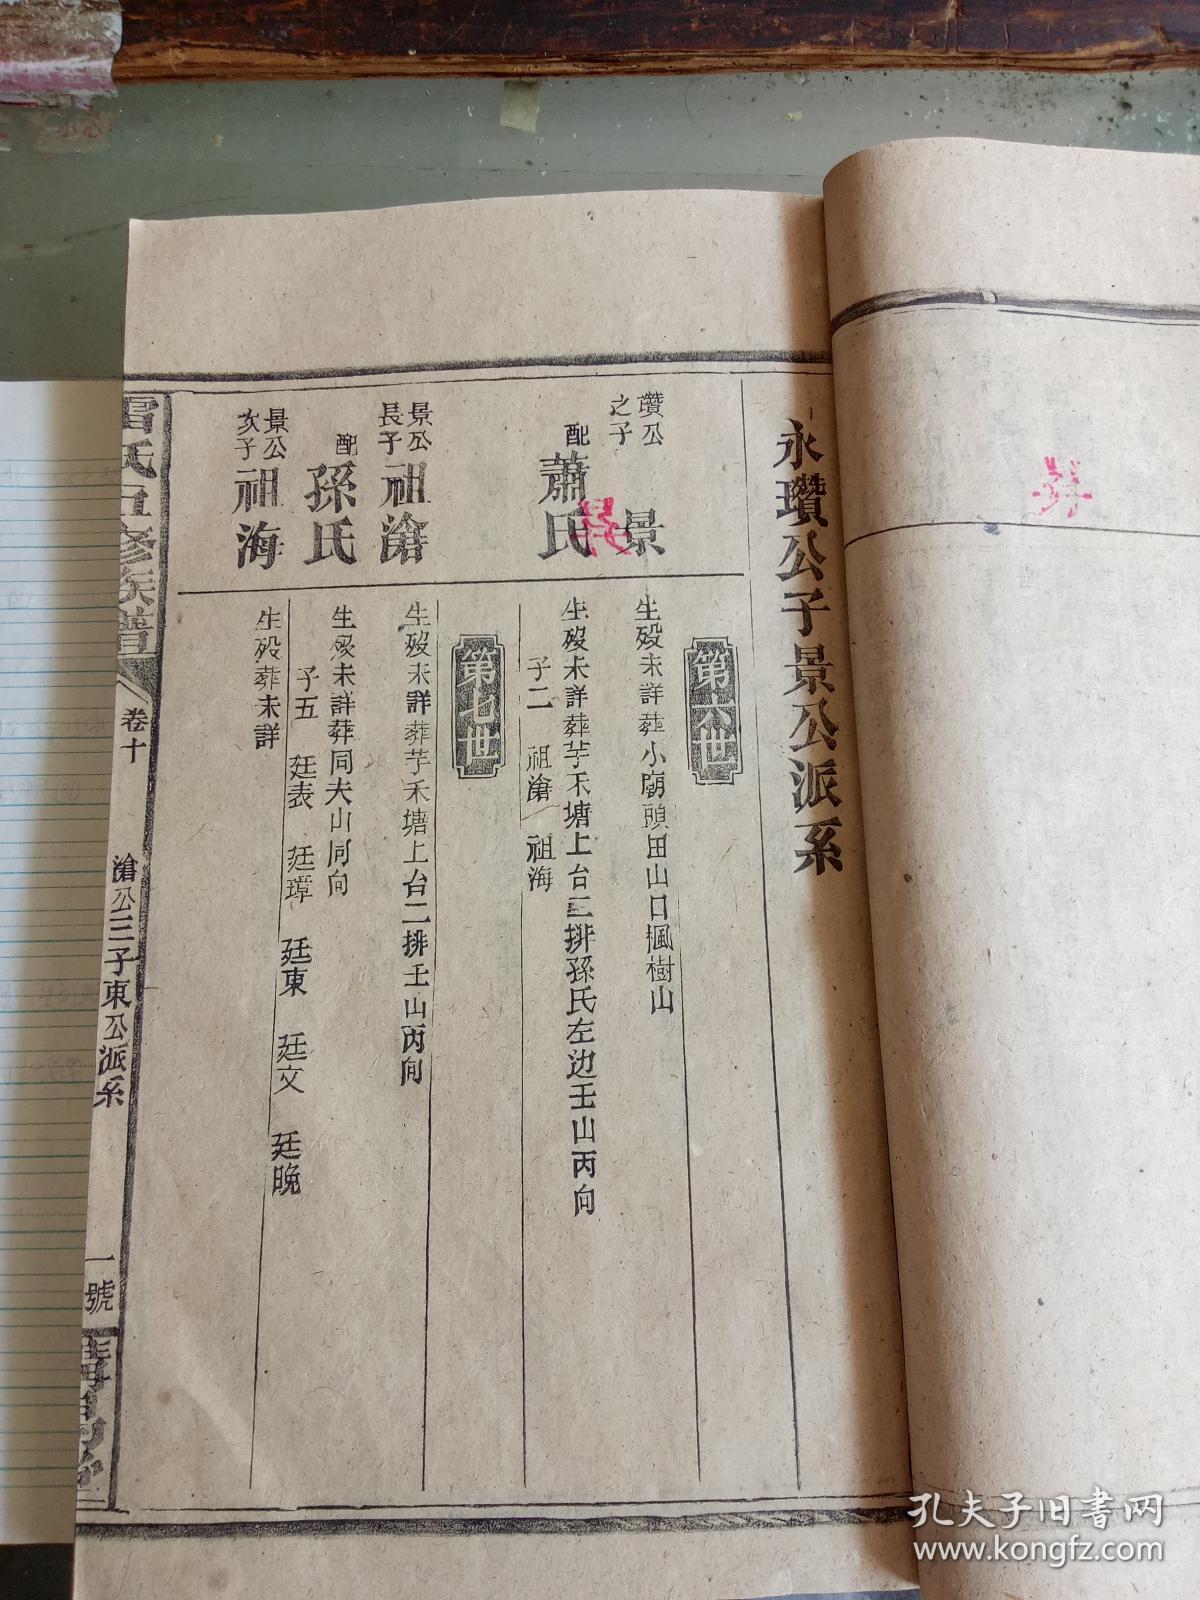 永瓚公子景公派系
第六世
瓚公
之子
景
生殁未詳葬小廟頭田山口楓樹山
配
蕭氏
生殁未詳葬芋禾塘上台二排孫氏左边壬山丙向
子二 祖滄 祖海
第七世
景公
長子
祖滄
生殁未詳葬芋禾塘上台二排壬山丙向
配
孫氏
生殁未詳葬同夫山同向
子五 廷表 廷璋 廷東 廷文 廷晚
景公
次子
祖海
生殁葬未詳
雷氏五修族譜
卷十
滄公三子東公派系
一號
孔夫子旧书网
www.kongfz.com